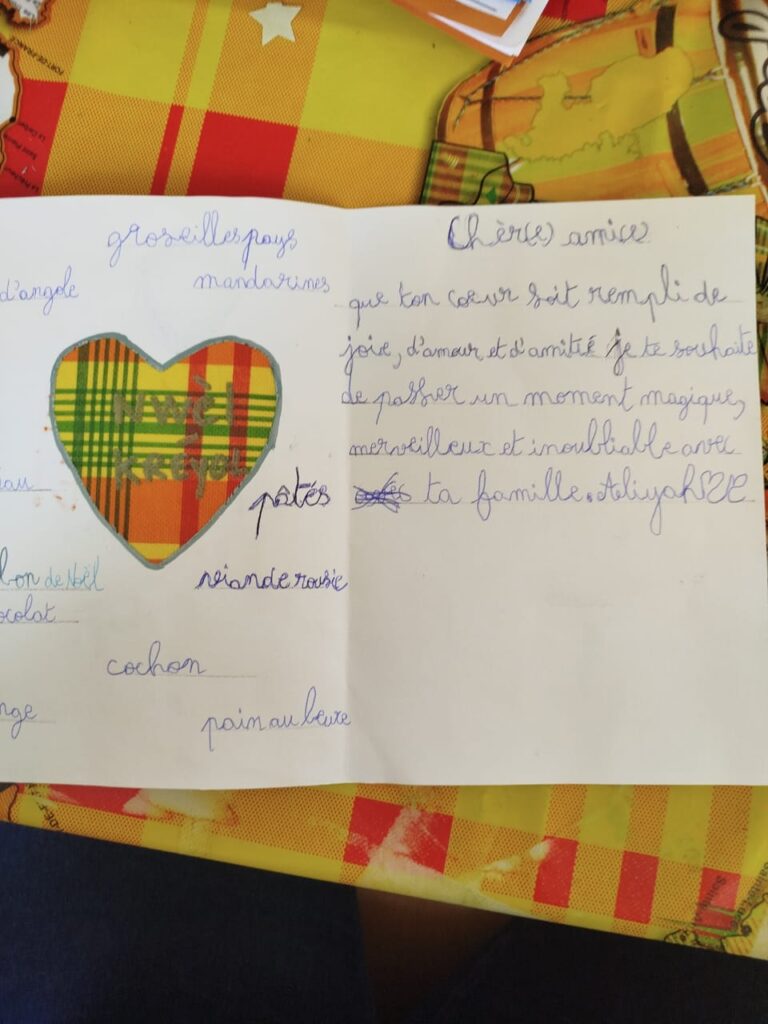 groseilles pays
mandarines
d'angole
NWÈL
KRÉYOL
pâtés
eau
de Noël
viande roussie
ocolat
cochon
nge
pain au beure
Chèr(e) ami(e)
que ton cœur soit rempli de
joie, d'amour et d'amitié je te souhaite
de passer un moment magique,
merveilleux et inoubliable avec
ta famille. Aliyah
FORT-DE-FRANCE